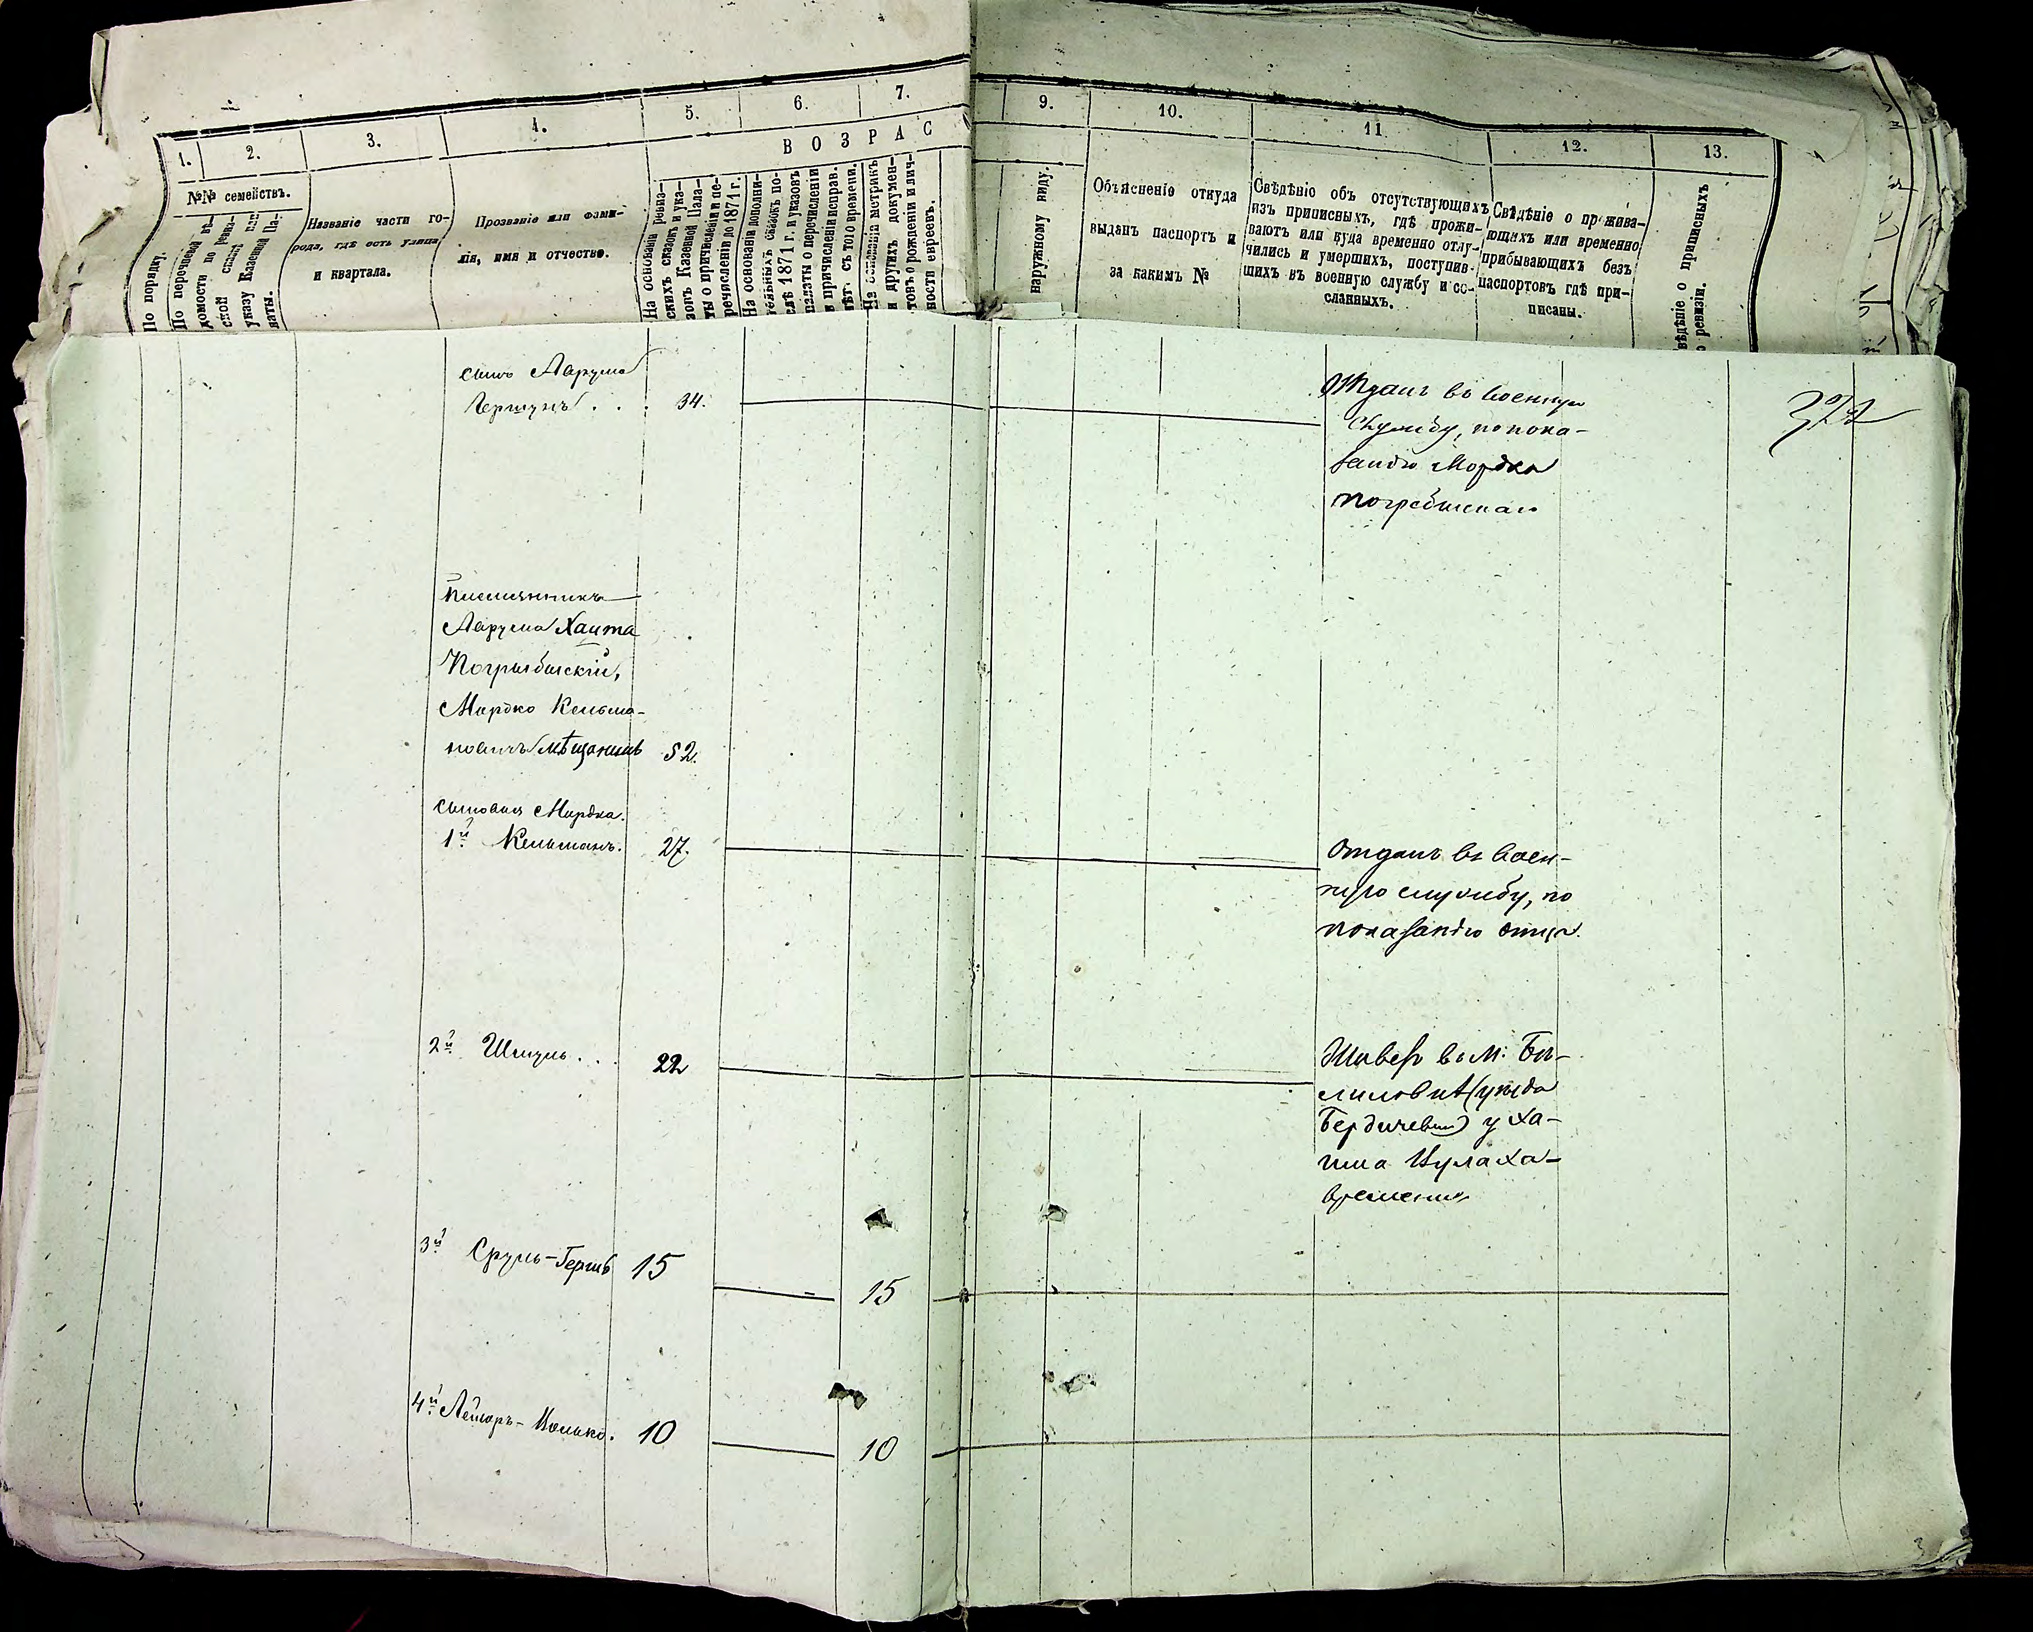 1.
2.
3.
4.
5.
6.
7.
9.
10.
11.
12.
13.
ВОЗРАС
№№ семействъ.
По порядку.
По перечневой вѣ-
домости по ревиз-
ской сказкѣ или
указу Казеной Па-
латы.
Названіе части го-
рода, гдѣ есть улица
и квартала.
Прозваніе или фами-
лія, имя и отчество.
На основаніи ревиз-
скихъ сказокъ и ука-
зовъ Казеной Пала-
ты о причисленіи и пе-
речисленіи до 1871 г.
На основаніи дополни-
тельныхъ сказокъ по-
слѣ 1871 г. и указовъ
палаты о перечисленіи
и причисленіи исправ.
лѣт. съ того времени.
На основаніи метрикъ
и другихъ докумен-
товъ о рожденіи и лич-
ности евреевъ.
наружному виду.
Объясненіе откуда
выданъ паспортъ и
за какимъ №
Свѣдѣніе объ отсутствующихъ
изъ приписныхъ, гдѣ прожи-
ваютъ или куда временно отлу-
чились и умершихъ, поступив-
шихъ въ военную службу и со-
сланныхъ.
Свѣдѣніе о прожива-
ющихъ или временно
прибывающихъ безъ
паспортовъ гдѣ при-
писаны.
вѣдѣніе о приписныхъ
о ревизіи.
322
сынъ Ларума
Гершунъ . . . 34.
Отданъ въ военную
службу, по пока-
занію Мордка
Погребискаго
Племянникъ
Хаима
Погрыбискій,
Мордко Кельма-
новичъ мѣщанинъ 52.
Сыновья Мордка.
1й Кельманъ. 27.
Отданъ въ воен-
ную службу, по
показанію отца.
2й Шмуль . . . 22
Живетъ въ м:
(уѣзда
Бердичев) у Ха-
има
времени
3й Сруль-Гершъ 15
15
4й Лейзоръ- 10
10